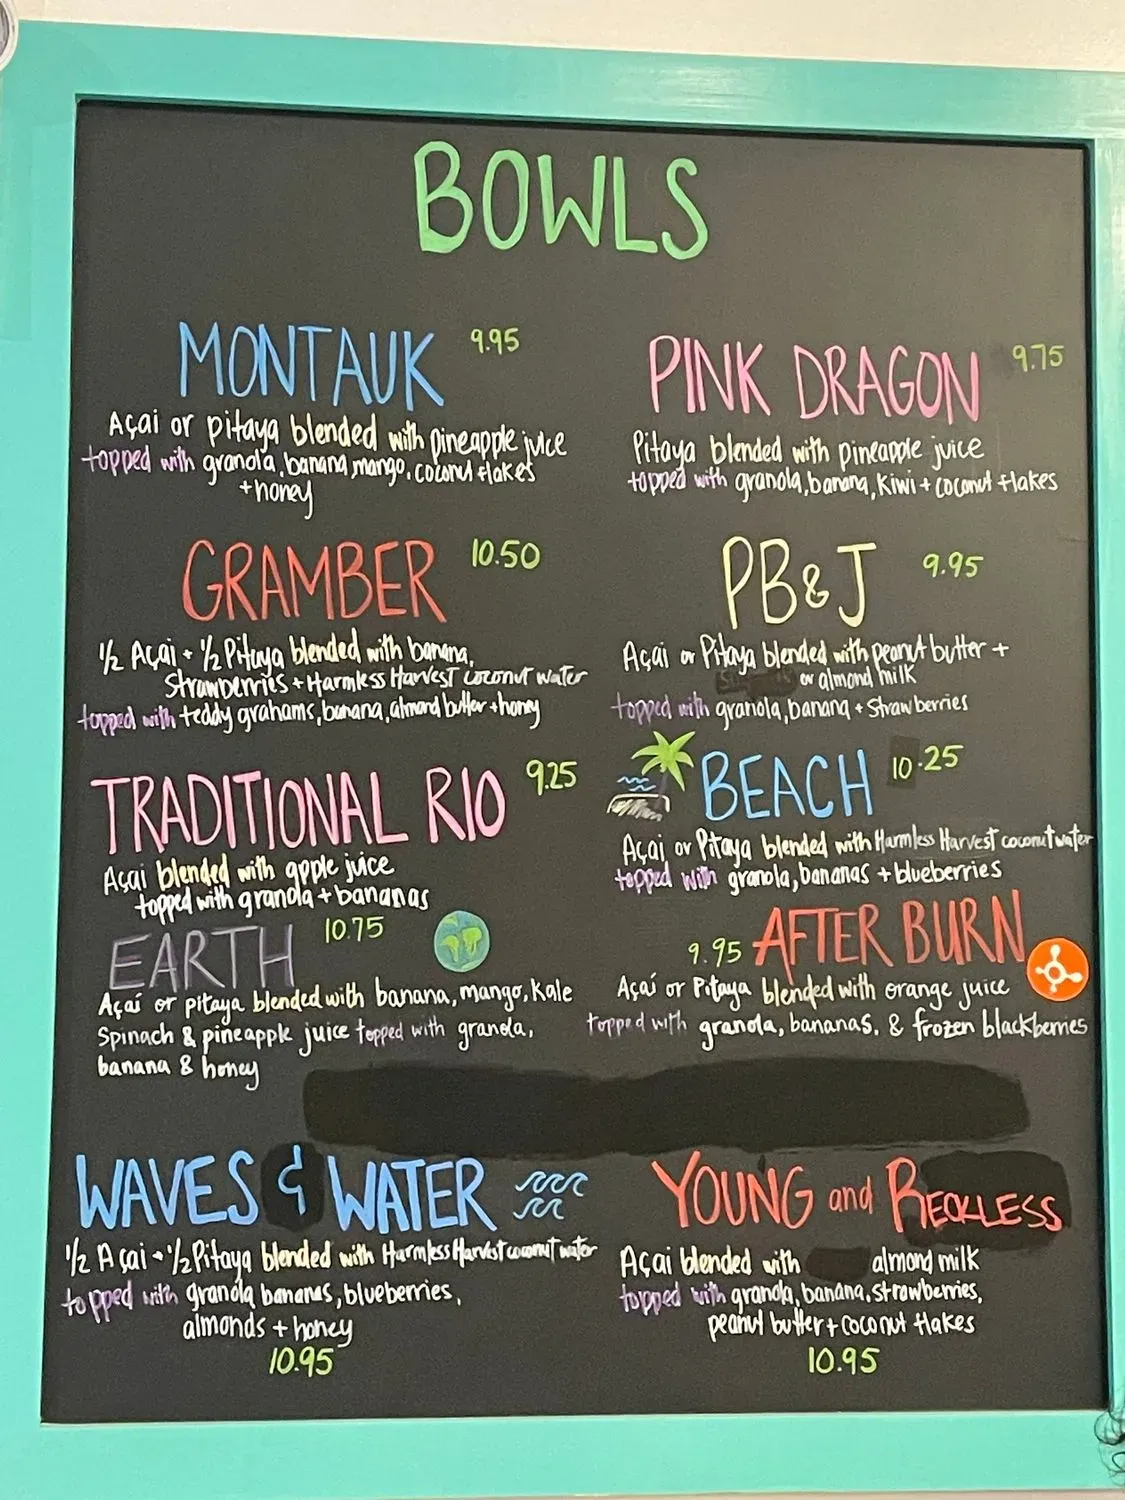 BOWLS
MONTAUK 9.95
Açai or pitaya blended with pineapple juice
topped with granola, banana, mango, coconut flakes
+ honey
PINK DRAGON 9.75
Pitaya blended with pineapple juice
topped with granola, banana, kiwi + coconut flakes
GRAMBER 10.50
1/2 Açai + 1/2 Pitaya blended with banana,
strawberries + Harmless Harvest coconut water
topped with teddy grahams, banana, almond butter + honey
PB&J 9.95
Açai or Pitaya blended with peanut butter +
or almond milk
topped with granola, banana + strawberries
TRADITIONAL RIO 9.25
Açai blended with apple juice
topped with granola + bananas
BEACH 10.25
Açai or Pitaya blended with Harmless Harvest coconut water
topped with granola, bananas + blueberries
EARTH 10.75
Açaí or pitaya blended with banana, mango, Kale
Spinach & pineapple juice topped with granola,
banana & honey
9.95 AFTER BURN
Açaí or Pitaya blended with orange juice
topped with granola, bananas, & frozen blackberries
WAVES & WATER
1/2 Açai + 1/2 Pitaya blended with Harmless Harvest coconut water
topped with granola bananas, blueberries,
almonds + honey
10.95
YOUNG and RECKLESS
Açai blended with almond milk
topped with granola, banana, strawberries,
peanut butter + coconut flakes
10.95